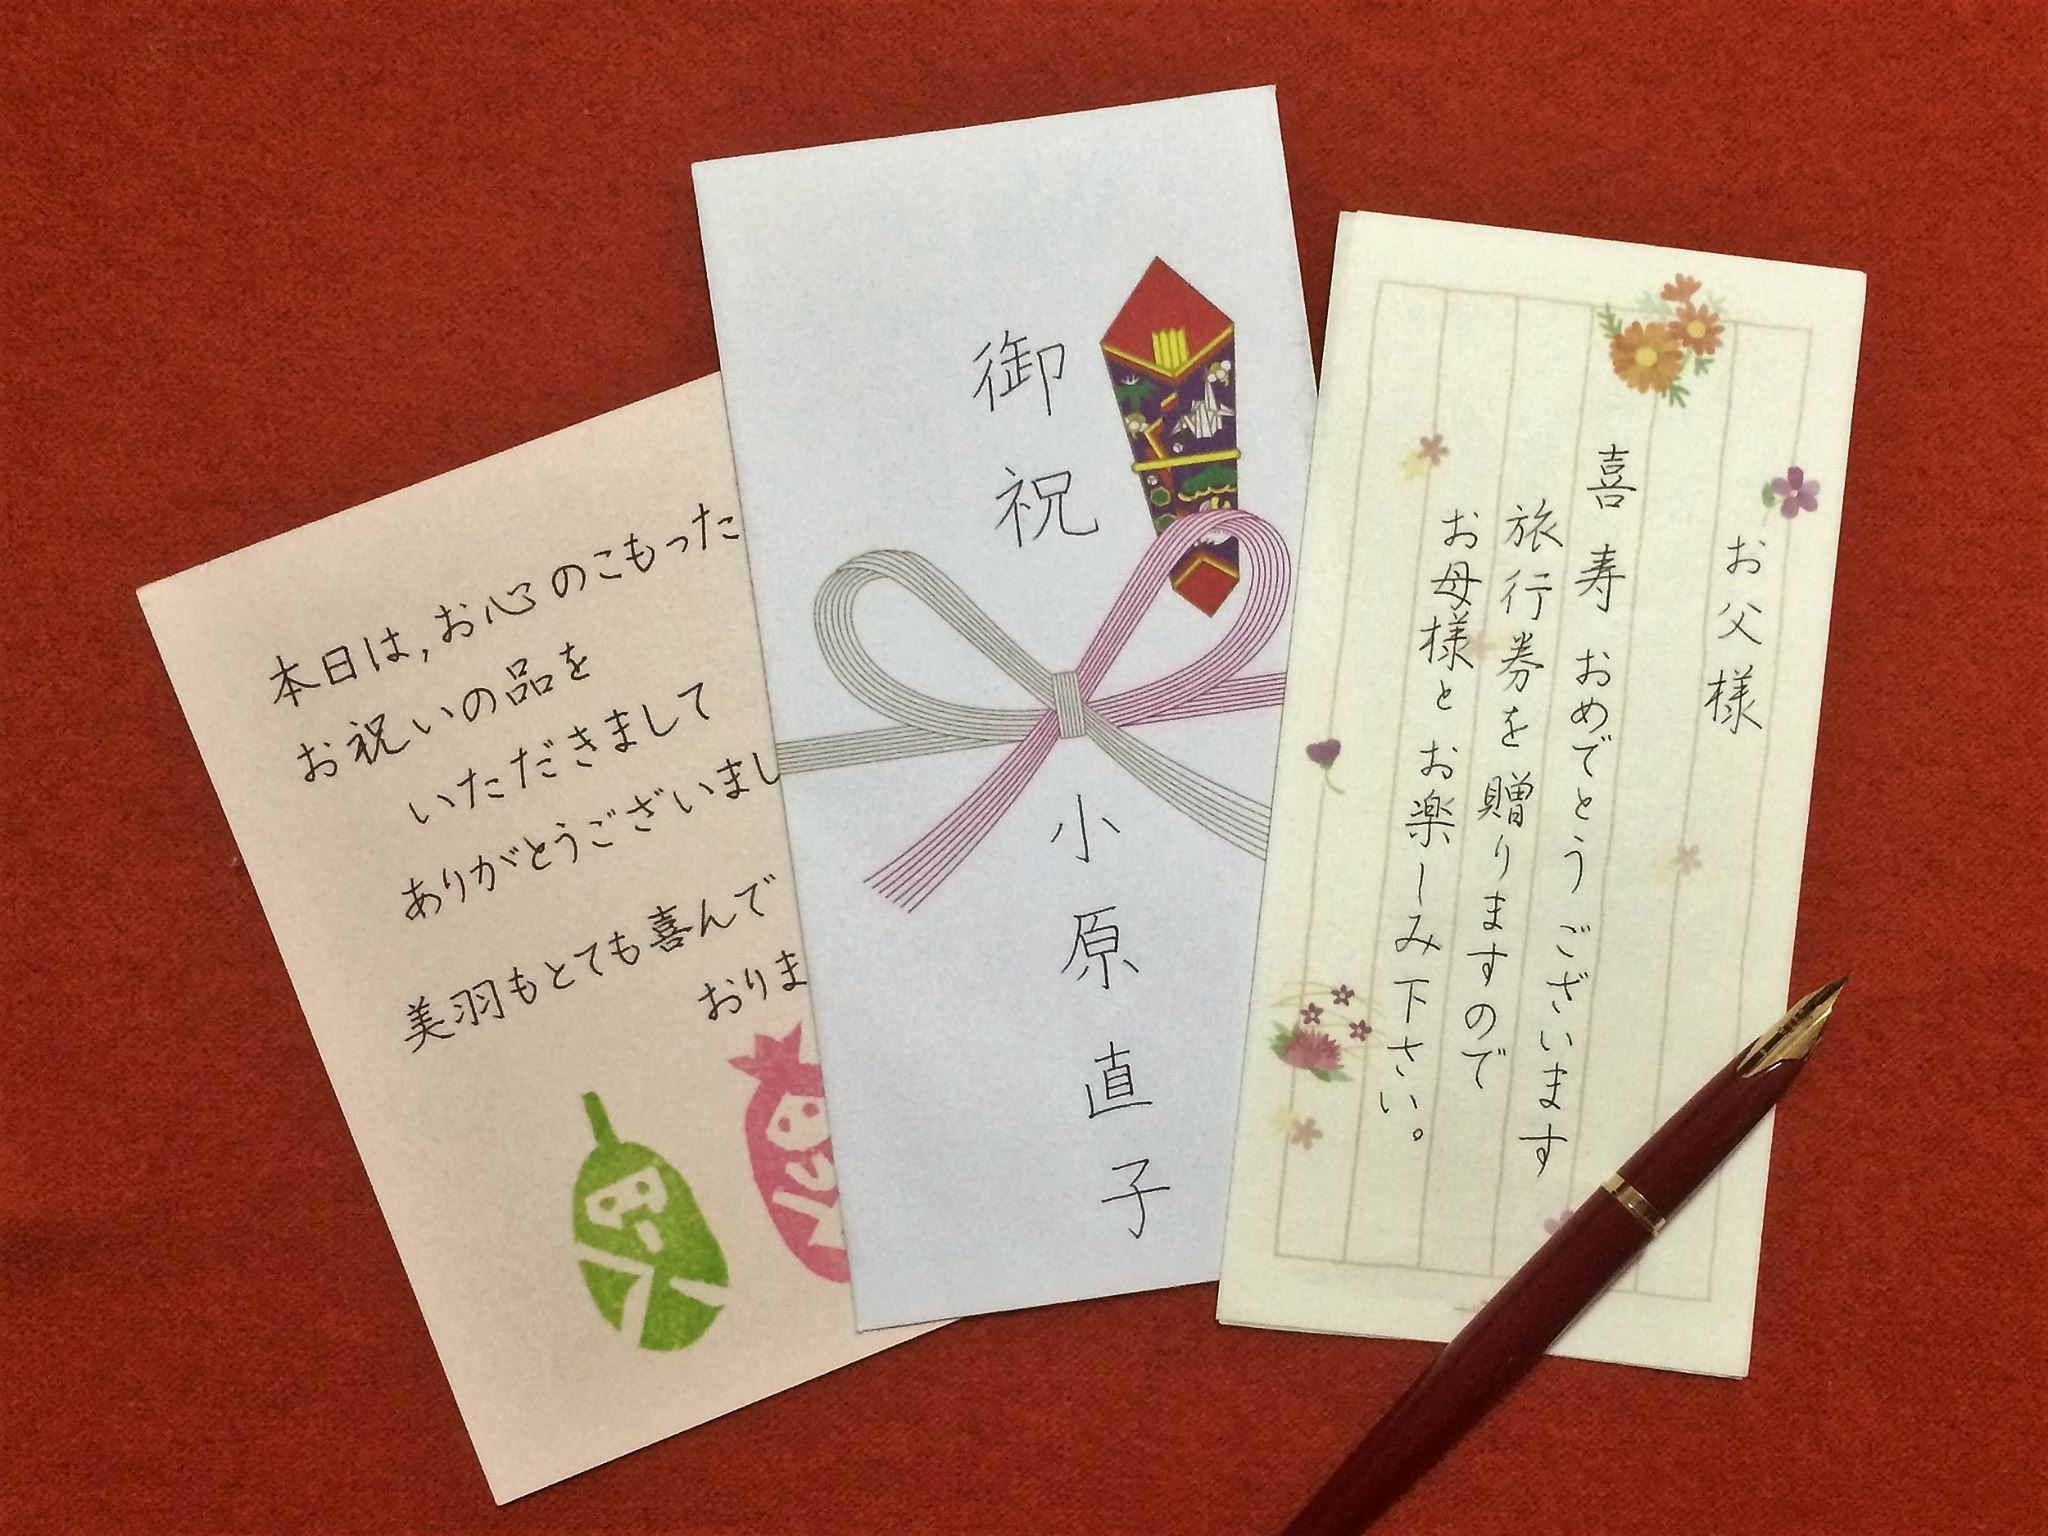 本日は,お心のこもった
お祝いの品を
いただきまして
ありがとうございまし
美羽もとても喜んで
おりま
御祝
小原直子
お父様
喜寿おめでとうございます
旅行券を贈りますので
お母様とお楽しみ下さい。